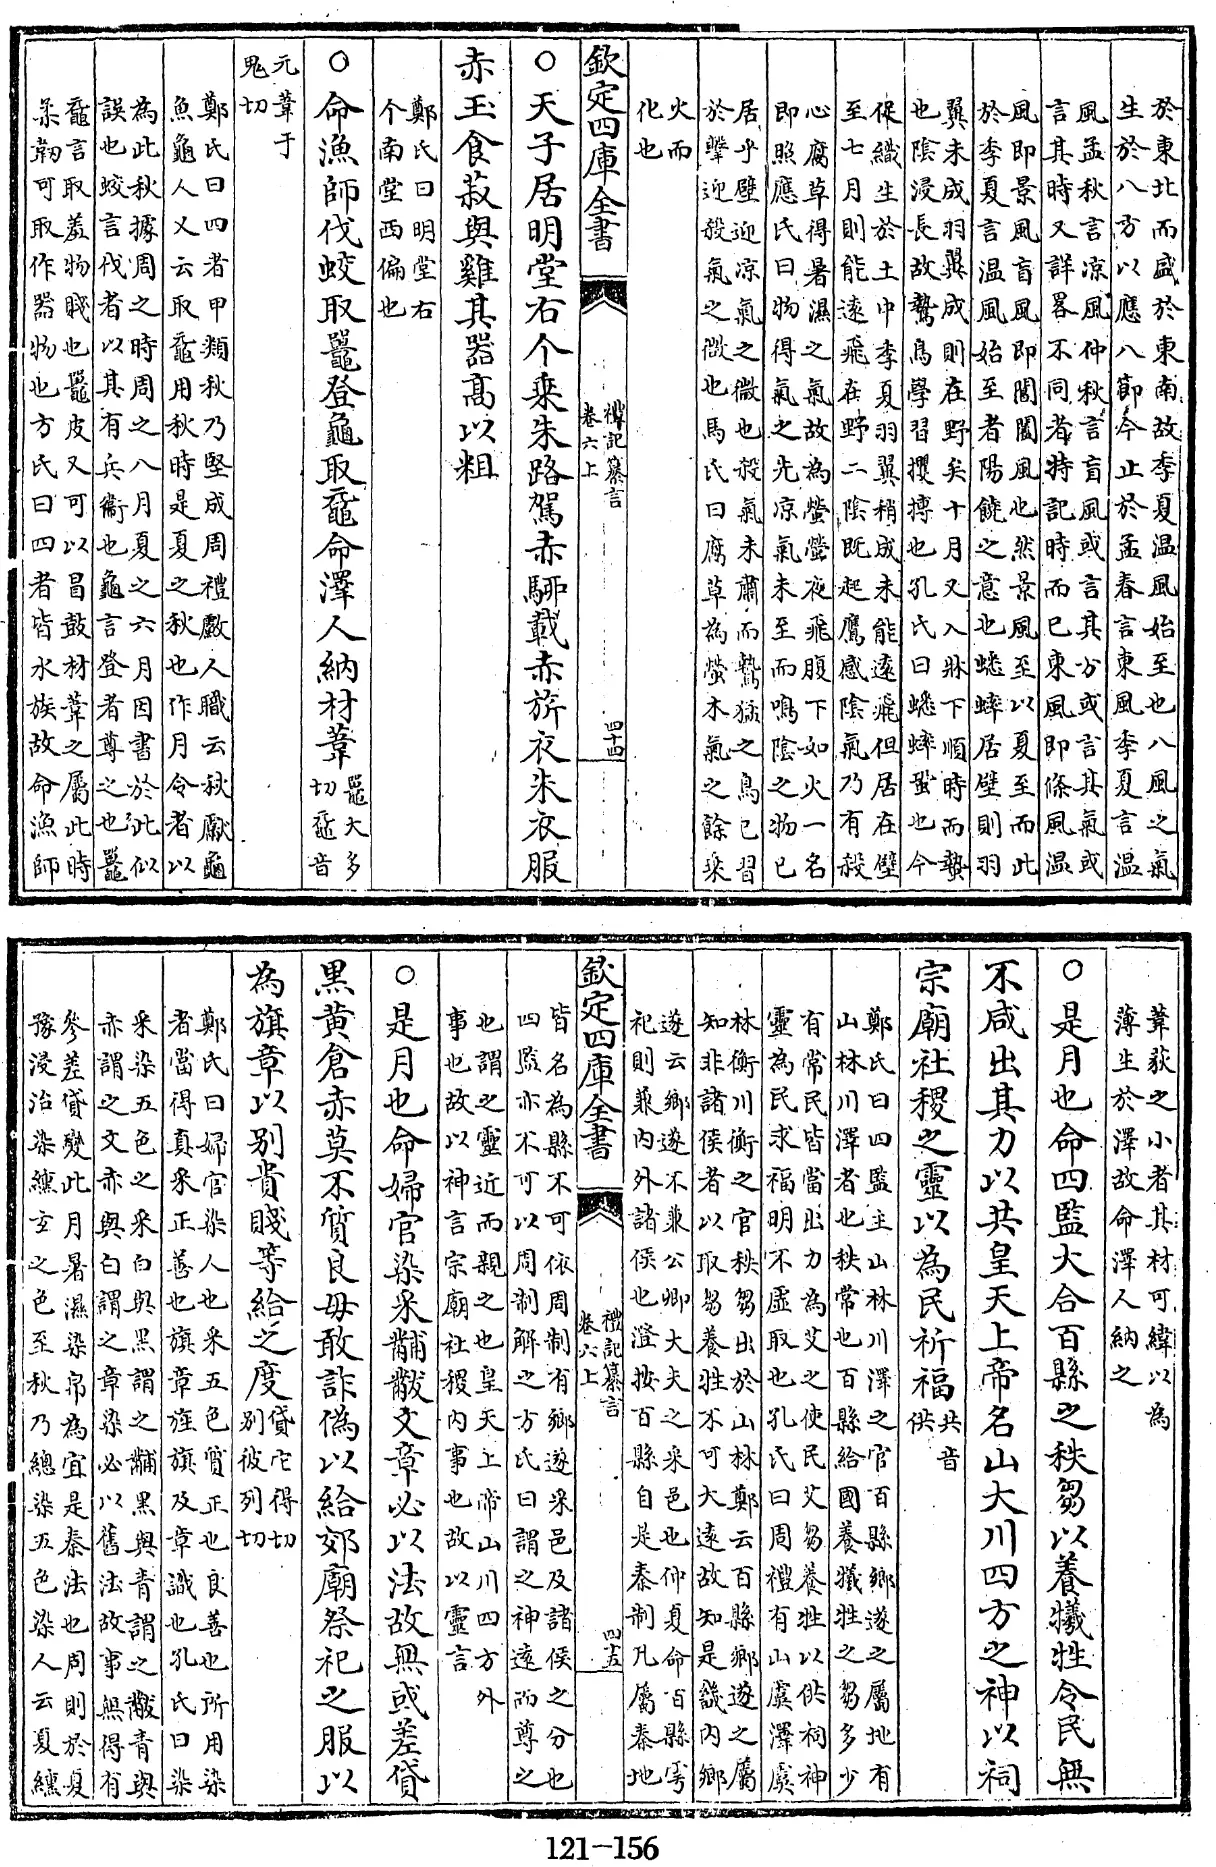 於東北而盛於東南故季夏温風始至也八風之氣
生於八方以應八節今止於孟春言東風季夏言温
風孟秋言涼風仲秋言盲風或言其方或言其氣或
言其時又詳畧不同者特記時而已東風即條風温
風即景風盲風即閶闔風也然景風至以夏至而此
於季夏言温風始至者陽饒之意也蟋蟀居壁則羽
翼未成羽翼成則在野矣十月又入牀下順時而蟄
也陰浸長故鷙鳥學習攫搏也孔氏曰蟋蟀蛩也今
促織生於土中季夏羽翼稍成未能遠飛但居在壁
至七月則能遠飛在野二陰既起鷹感陰氣乃有殺
心腐草得暑濕之氣故為螢螢夜飛腹下如火一名
即照應氏曰物得氣之先凉氣未至而鳴陰之物已
居乎壁迎凉氣之微也殺氣未肅而鷙猛之鳥已習
於擊迎殺氣之微也馬氏曰腐草為螢木氣之餘乘
火而
化也
欽定四庫全書
禮記纂言
卷六上
四十四
○天子居明堂右个乗朱路駕赤駵載赤旂衣朱衣服
赤玉食菽與雞其器髙以粗
鄭氏曰明堂右
个南堂西偏也
○命漁師伐蛟取鼉登龜取黿命澤人納材葦
鼉大多
切黿音
元葦于
鬼切
鄭氏曰四者甲類秋乃堅成周禮㱆人職云秋獻龜
魚龜人又云取龜用秋時是夏之秋也作月令者以
為此秋據周之時周之八月夏之六月因書於此似
誤也蛟言伐者以其有兵衞也龜言登者尊之也鼉
黿言取羞物賤也鼉皮又可以冒鼓材葦之屬此時
柔韌可取作器物也方氏曰四者皆水族故命漁師
葦荻之小者其材可緯以為
薄生於澤故命澤人納之
○是月也命四監大合百縣之秩芻以養犧牲令民無
不咸出其力以共皇天上帝名山大川四方之神以祠
宗廟社稷之靈以為民祈福
共音
供
鄭氏曰四監主山林川澤之官百縣鄉遂之屬地有
山林川澤者也秩常也百縣給國養犧牲之芻多少
有常民皆當出力為艾之使民艾芻養牲以供祠神
靈為民求福明不虛取也孔氏曰周禮有山虞澤虞
林衡川衡之官秩芻出於山林鄭云百縣鄉遂之屬
知非諸侯者以取芻養牲不可大遠故知是畿內鄉
遂云鄉遂不兼公卿大夫之采邑也仲夏命百縣雩
祀則兼內外諸侯也澄按百縣自是秦制凡屬秦地
欽定四庫全書
禮記纂言
卷六上
四十五
皆名為縣不可依周制有鄉遂采邑及諸侯之分也
四監亦不可以周制解之方氏曰謂之神遠而尊之
也謂之靈近而親之也皇天上帝山川四方外
事也故以神言宗廟社稷內事也故以靈言
○是月也命婦官染采黼黻文章必以法故無或差貸
黒黄倉赤莫不質良毋敢詐偽以給郊廟祭祀之服以
為旗章以别貴賤等給之度
貸它得切
别彼列切
鄭氏曰婦官染人也采五色質正也良善也所用染
者當得真采正善也旗章旌旗及章識也孔氏曰染
采染五色之采白與黑謂之黼黑與青謂之黻青與
赤謂之文赤與白謂之章染必以舊法故事無得有
參差貸變此月暑濕染帛為宜是秦法也周則於夏
豫浸治染纁玄之色至秋乃總染五色染人云夏纁
121-156